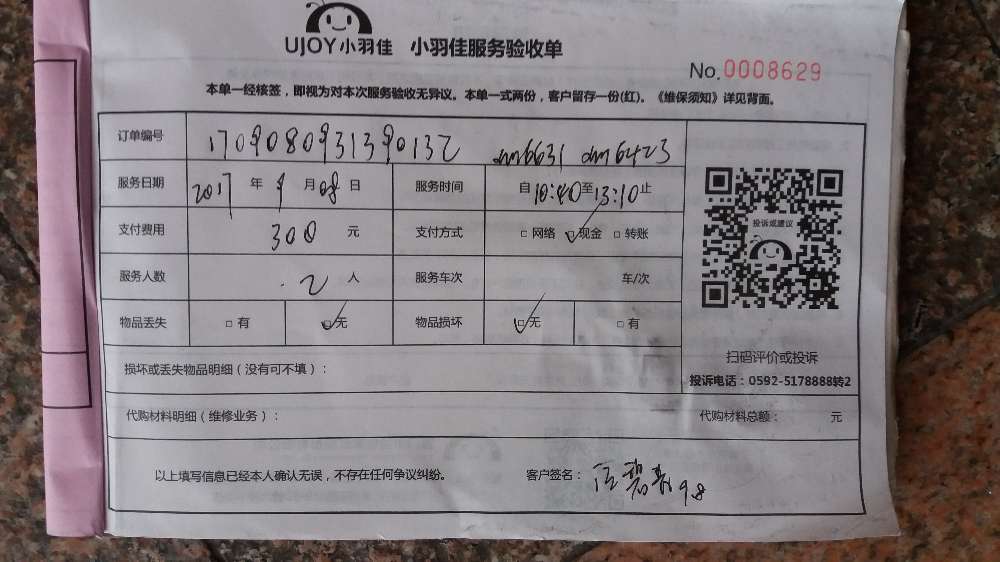 UJOY小羽佳 小羽佳服务验收单
No.0008629
本单一经核签，即视为对本次服务验收无异议。本单一式两份，客户留存一份(红)。《维保须知》详见背面。
订单编号 1709080931390132 dm6631 dm6423
服务日期 2017 年 9 月 08 日 服务时间 自 10:40 至 13:10 止
支付费用 300 元 支付方式 □ 网络 □ 现金 □ 转账
服务人数 2 人 服务车次 车/次
物品丢失 □ 有 □ 无 物品损坏 □ 无 □ 有
投诉或建议
扫码评价或投诉
投诉电话：0592-5178888转2
损坏或丢失物品明细（没有可不填）：
代购材料明细（维修业务）： 代购材料总额： 元
以上填写信息已经本人确认无误，不存在任何争议纠纷。 客户签名： 9.8